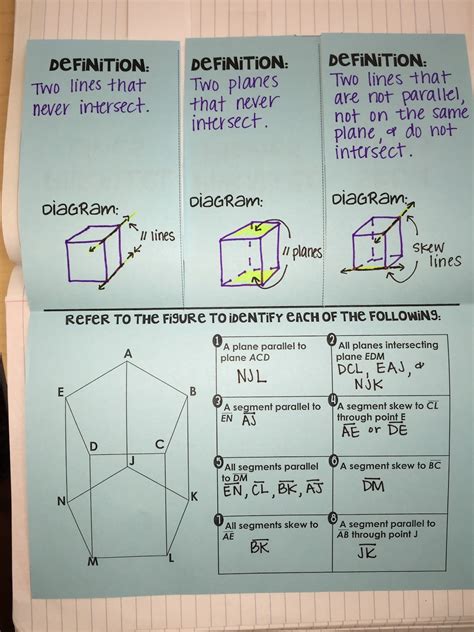 DEFINITION:
Two lines that
never intersect.
DIAGRAM:
// lines
DEFINITION:
Two planes
that never
intersect.
DIAGRAM:
// planes
DEFINITION:
Two lines that
are not parallel,
not on the same
plane, & do not
intersect.
DIAGRAM:
skew
lines
REFER TO THE FIGURE TO IDENTIFY EACH OF THE FOLLOWING:
A
E
B
D
C
J
N
K
M
L
1
A plane parallel to
plane ACD
NJL
2
All planes intersecting
plane EDM
DCL, EAJ, &
NJK
3
A segment parallel to
EN AJ
4
A segment skew to CL
through point E
AE or DE
5
All segments parallel
to DM
EN, CL, BK, AJ
6
A segment skew to BC
DM
7
All segments skew to
AE
BK
8
A segment parallel to
AB through point J
JK